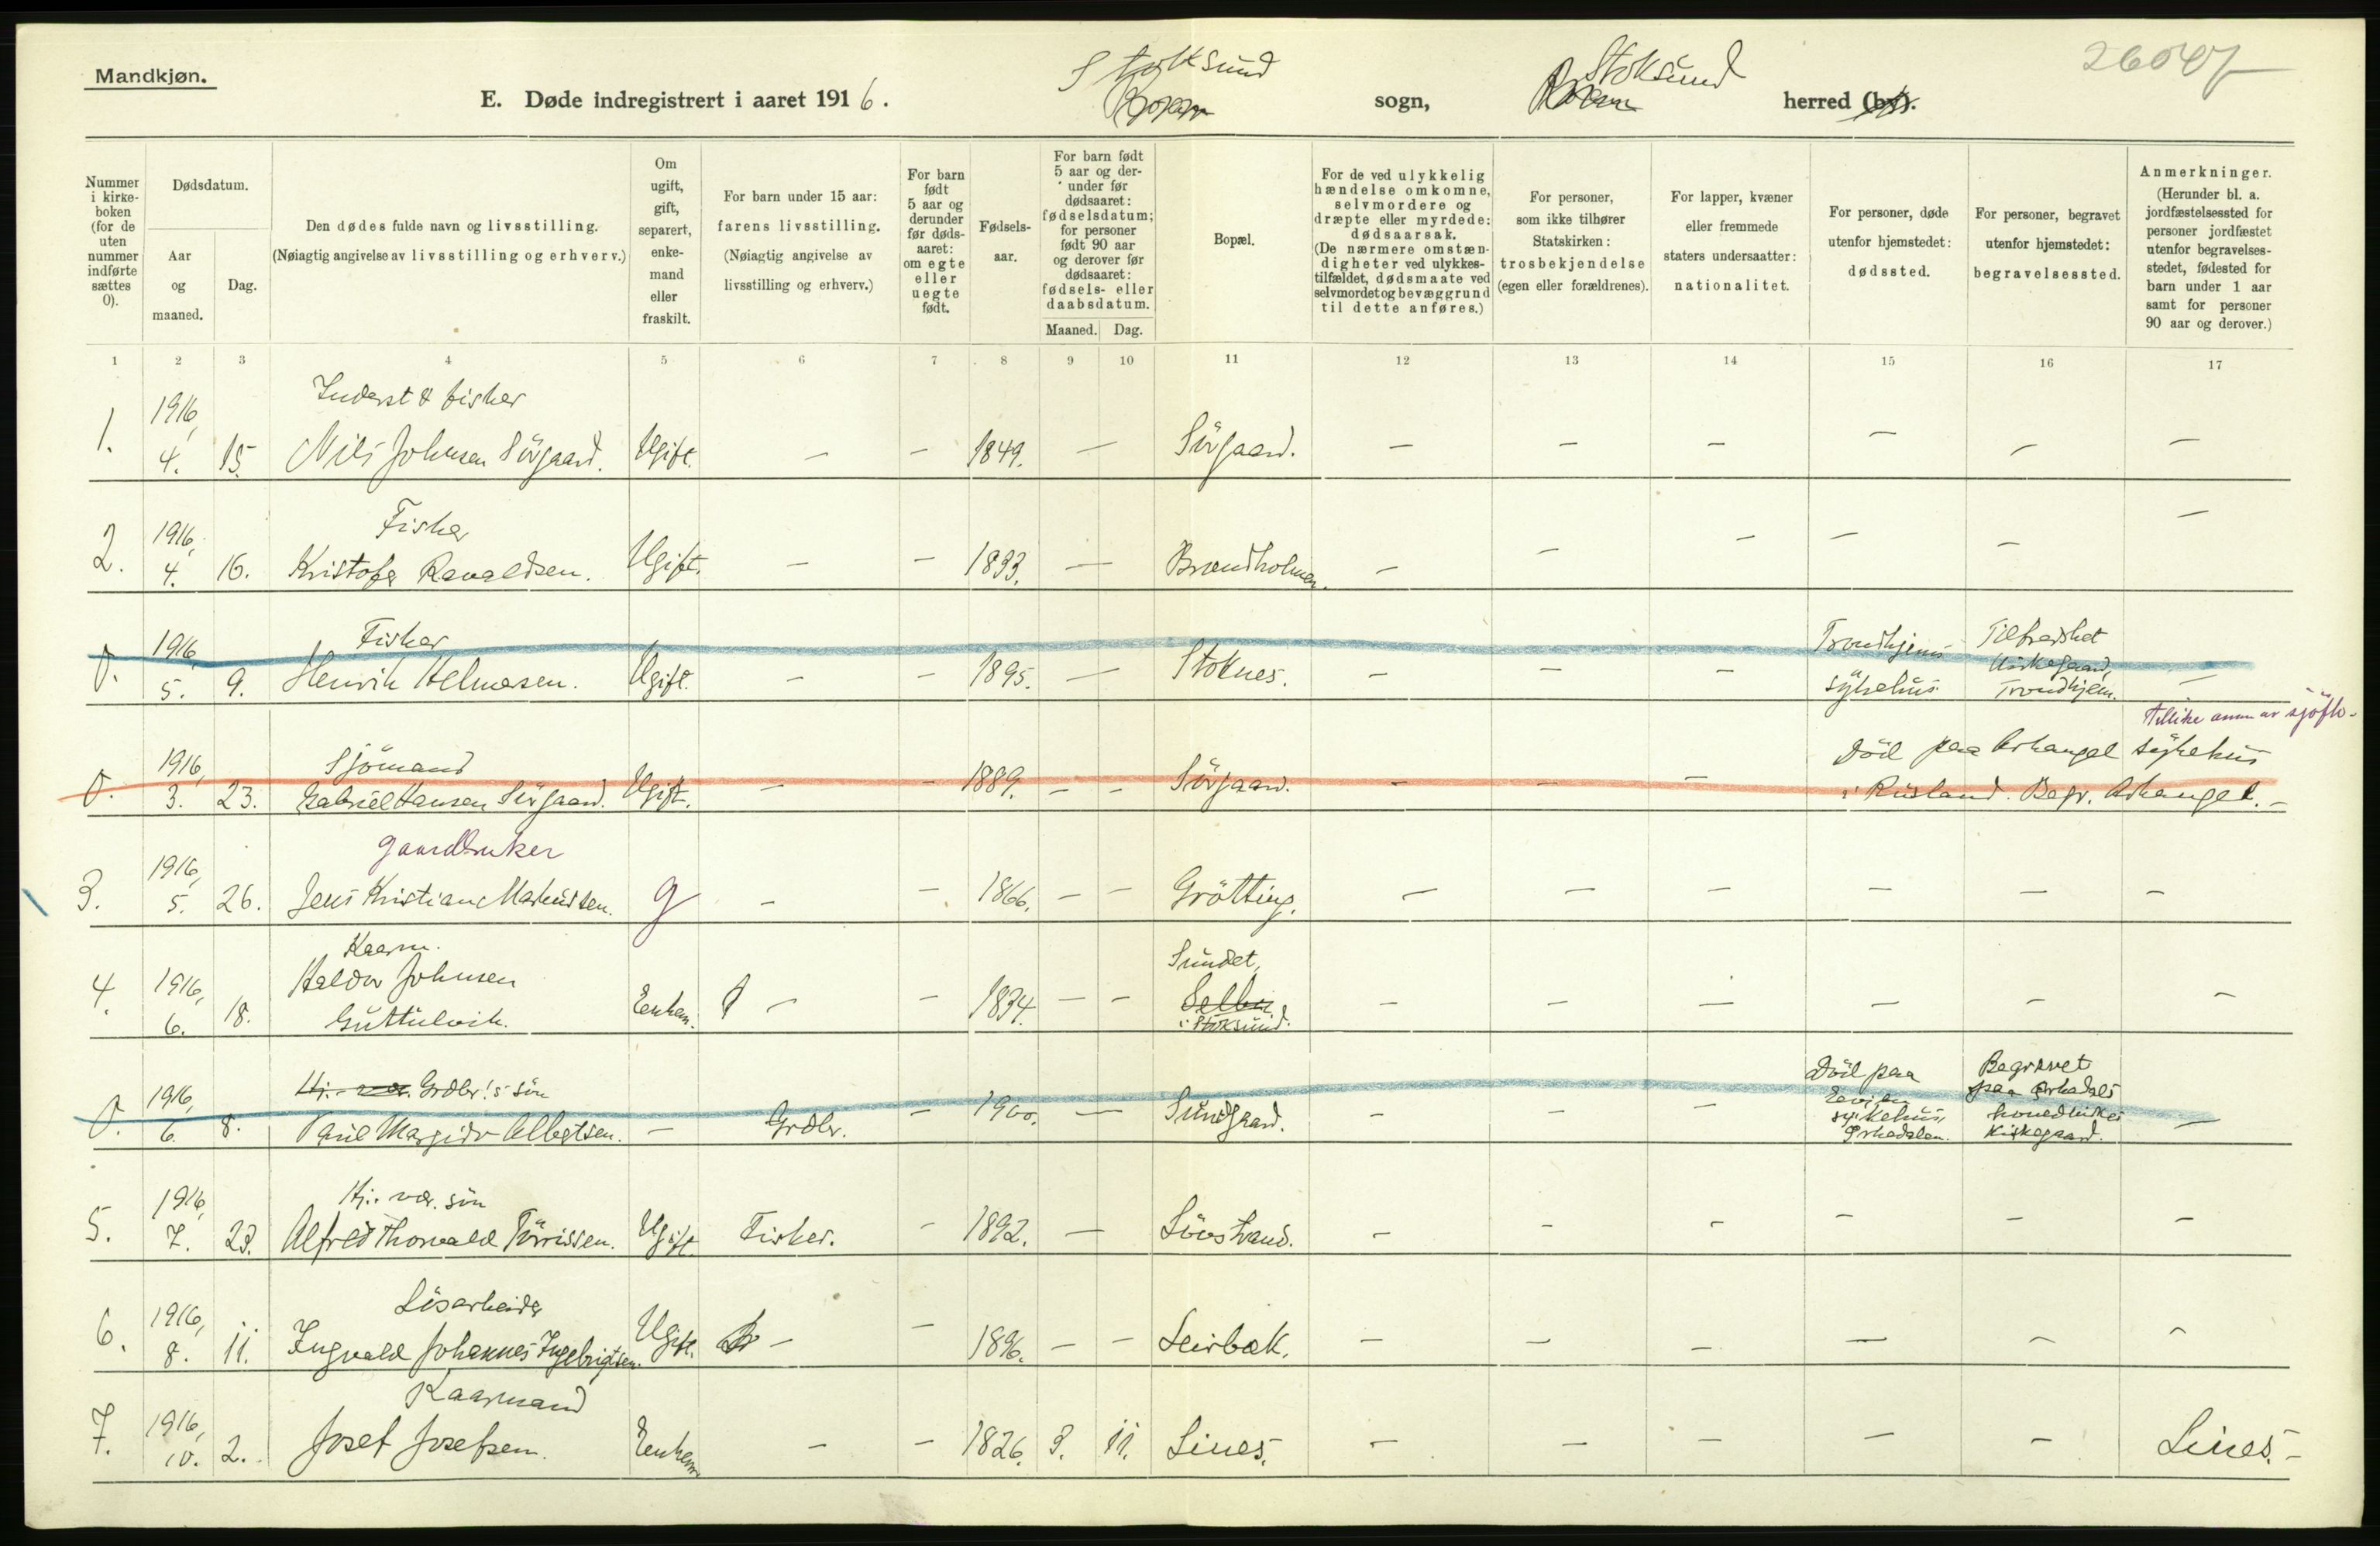 Mandkjøn.
E. Døde indregistrert i aaret 1916. Stoksund sogn, Stoksund herred (by).
Nummer i kirke-boken (for de uten nummer indførte sættes 0).
Dødsdatum.
Aar og maaned.
Dag.
Den dødes fulde navn og livsstilling.
(Nøiagtig angivelse av livsstilling og erhverv.)
Om ugift, gift, separert, enke-mand eller fraskilt.
For barn under 15 aar: farens livsstilling.
(Nøiagtig angivelse av livsstilling og erhverv.)
For barn født 5 aar og derunder før døds-aaret: om egte eller uegte født.
Fødsels-aar.
For barn født 5 aar og der-under før dødsaaret: fødselsdatum; for personer født 90 aar og derover før dødsaaret: fødsels- eller daabsdatum.
Maaned. Dag.
Bopæl.
For de ved ulykkelig hændelse omkomne, selvmordere og dræpte eller myrdede: dødsaarsak.
(De nærmere omstæn-digheter ved ulykkes-tilfældet, dødsmaate ved selvmordet og bevæggrund til dette anføres.)
For personer, som ikke tilhører Statskirken: trosbekjendelse (egen eller forældrenes).
For lapper, kvæner eller fremmede staters undersaatter: nationalitet.
For personer, døde utenfor hjemstedet: dødssted.
For personer, begravet utenfor hjemstedet: begravelsessted.
Anmerkninger.
(Herunder bl. a. jordfæstelsessted for personer jordfæstet utenfor begravelses-stedet, fødested for barn under 1 aar samt for personer 90 aar og derover.)
1 2 3 4 5 6 7 8 9 10 11 12 13 14 15 16 17
Inderst & fisker
1. 1916, 4. 15. Nils Johnsen Sörgaard. Ugift. – – 1849. – Sörgaard. – – – – – –
Fisker
2. 1916, 4. 16. Kristofer Ravaldsen. Ugift. – – 1893. – Brandholmen. – – – – – –
Fisker
0. 1916, 5. 9. Henrik Helmersen. Ugift. – – 1895. – Stoknes. – – – Trondhjems sykehus. Tilfredshet kirkegaard, Trondhjem. –
Sjömand
0. 1916, 3. 23. Gabriel Hansen Sörgaard. Ugift. – – 1889. – – Sörgaard. – – – Död paa Arkangel sykehus
i Rusland. Begr. Arkangel. –
gaardbruker
3. 1916, 5. 26. Jens Kristian Markussen. g – – 1866. – – Grötting. – – – – – –
Kaarm.
4. 1916, 6. 18. Haldor Johnsen Guttulvik. Enkem. – – 1834. – – Sundet, Selbu i Stoksund. – – – – – –
Grdbr.'s sön
0. 1916, 6. 8. Paul Margido Albertsen. – Grdbr. – 1900. – Sundgaard. – – – Död paa sykehus, Orkedalen. Begravet paa Orkedals hovedkirkes kirkegaard. –
Hj.: vær. sön
5. 1916, 7. 23. Alfred Thorvald Törrissen. Ugift. Fisker. – 1892. – Lövstrand. – – – – – –
Lösarbeider
6. 1916, 8. 11. Ingvald Johannes Ingebrigtsen. Ugift. – – 1896. – – Leirbæk. – – – – – –
Kaarmand
7. 1916, 10. 2. Josef Josefsen. Enkem. – – 1826. 3. 11. Lines. – – – – – Lines. –